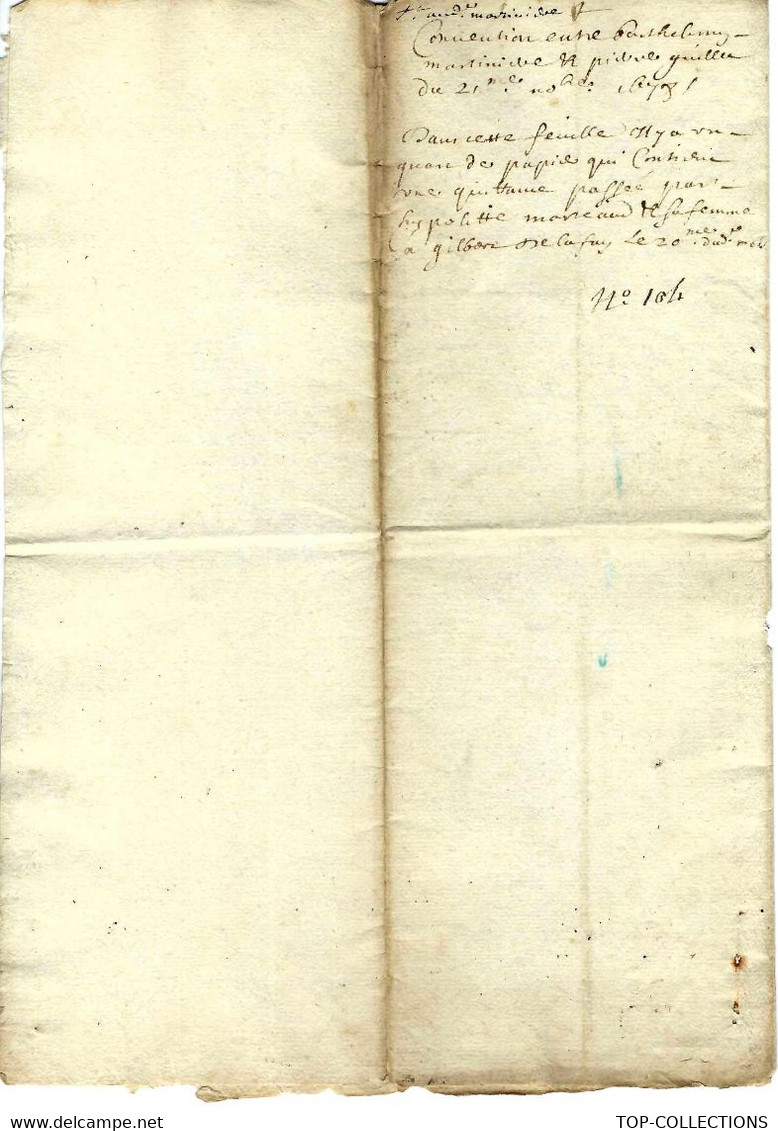 martiniere
Convention entre barthelemy
martiniere & pierre quillet
du 21me no.bre
Dans cette feuille Il y a un
quart de papier qui Contient
une quittance passée par
hypolitte moreaud & sa femme
a gilbert De lafay Le 20me dud.
N.o 104
TOP-COLLECTIONS